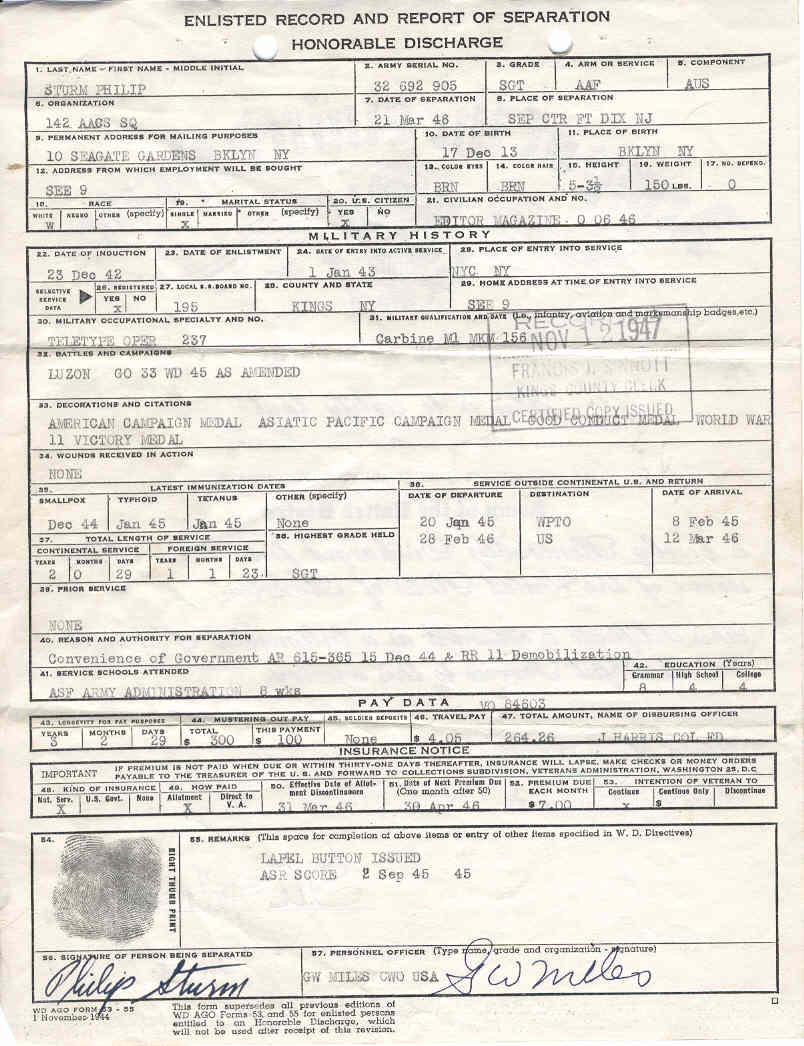 ENLISTED RECORD AND REPORT OF SEPARATION
HONORABLE DISCHARGE
1. LAST NAME - FIRST NAME - MIDDLE INITIAL
STURM PHILIP
2. ARMY SERIAL NO.
32 692 905
3. GRADE
SGT
4. ARM OR SERVICE
AAF
5. COMPONENT
AUS
6. ORGANIZATION
142 AACS SQ
7. DATE OF SEPARATION
21 Mar 46
8. PLACE OF SEPARATION
SEP CTR FT DIX NJ
9. PERMANENT ADDRESS FOR MAILING PURPOSES
10 SEAGATE GARDENS BKLYN NY
10. DATE OF BIRTH
17 Dec 13
11. PLACE OF BIRTH
BKLYN NY
12. ADDRESS FROM WHICH EMPLOYMENT WILL BE SOUGHT
SEE 9
13. COLOR EYES
BRN
14. COLOR HAIR
BRN
15. HEIGHT
5-3½
16. WEIGHT
150 LBS.
17. NO. DEPEND.
0
18. RACE
WHITE NEGRO OTHER (specify)
W
19. MARITAL STATUS
SINGLE MARRIED OTHER (specify)
X
20. U.S. CITIZEN
YES NO
X
21. CIVILIAN OCCUPATION AND NO.
EDITOR MAGAZINE 0 06 46
MILITARY HISTORY
22. DATE OF INDUCTION
23 Dec 42
23. DATE OF ENLISTMENT
24. DATE OF ENTRY INTO ACTIVE SERVICE
1 Jan 43
25. PLACE OF ENTRY INTO SERVICE
NYC NY
SELECTIVE SERVICE DATA
26. REGISTERED
YES NO
X
27. LOCAL S.S. BOARD NO.
195
28. COUNTY AND STATE
KINGS NY
29. HOME ADDRESS AT TIME OF ENTRY INTO SERVICE
SEE 9
30. MILITARY OCCUPATIONAL SPECIALTY AND NO.
TELETYPE OPER 237
31. MILITARY QUALIFICATION AND DATE (i.e., infantry, aviation and marksmanship badges, etc.)
Carbine M1 MKM 156
NOV 12 1947
FRANCIS J. SINNOTT
KINGS COUNTY CLERK
CERTIFIED COPY ISSUED
32. BATTLES AND CAMPAIGNS
LUZON GO 33 WD 45 AS AMENDED
33. DECORATIONS AND CITATIONS
AMERICAN CAMPAIGN MEDAL ASIATIC PACIFIC CAMPAIGN MEDAL GOOD CONDUCT MEDAL WORLD WAR
11 VICTORY MEDAL
34. WOUNDS RECEIVED IN ACTION
NONE
35. LATEST IMMUNIZATION DATES
SMALLPOX TYPHOID TETANUS OTHER (specify)
Dec 44 Jan 45 Jan 45 None
36. SERVICE OUTSIDE CONTINENTAL U.S. AND RETURN
DATE OF DEPARTURE DESTINATION DATE OF ARRIVAL
20 Jan 45 WPTO 8 Feb 45
28 Feb 46 US 12 Mar 46
37. TOTAL LENGTH OF SERVICE
CONTINENTAL SERVICE FOREIGN SERVICE
YEARS MONTHS DAYS YEARS MONTHS DAYS
2 0 29 1 1 23
38. HIGHEST GRADE HELD
SGT
39. PRIOR SERVICE
NONE
40. REASON AND AUTHORITY FOR SEPARATION
Convenience of Government AR 615-365 15 Dec 44 & RR 11 Demobilization
41. SERVICE SCHOOLS ATTENDED
ASF ARMY ADMINISTRATION 8 wks
42. EDUCATION (Years)
Grammar High School College
8 4 4
PAY DATA
VO 84603
43. LONGEVITY FOR PAY PURPOSES
YEARS MONTHS DAYS
3 2 29
44. MUSTERING OUT PAY
TOTAL THIS PAYMENT
$ 300 $ 100
45. SOLDIER DEPOSITS
None
46. TRAVEL PAY
$ 4.05
47. TOTAL AMOUNT, NAME OF DISBURSING OFFICER
264.26 J HARRIS COL FD
INSURANCE NOTICE
IMPORTANT
IF PREMIUM IS NOT PAID WHEN DUE OR WITHIN THIRTY-ONE DAYS THEREAFTER, INSURANCE WILL LAPSE. MAKE CHECKS OR MONEY ORDERS
PAYABLE TO THE TREASURER OF THE U. S. AND FORWARD TO COLLECTIONS SUBDIVISION, VETERANS ADMINISTRATION, WASHINGTON 25, D.C.
48. KIND OF INSURANCE
Nat. Serv. U.S. Govt. None
X
49. HOW PAID
Allotment Direct to V. A.
X
50. Effective Date of Allotment Discontinuance
31 Mar 46
51. Date of Next Premium Due (One month after 50)
30 Apr 46
52. PREMIUM DUE EACH MONTH
$ 7.00
53. INTENTION OF VETERAN TO
Continue Continue Only Discontinue
X $
54.
RIGHT THUMB PRINT
55. REMARKS (This space for completion of above items or entry of other items specified in W. D. Directives)
LAPEL BUTTON ISSUED
ASR SCORE 2 Sep 45 45
56. SIGNATURE OF PERSON BEING SEPARATED
Philip Sturm
57. PERSONNEL OFFICER (Type name, grade and organization - signature)
GW MILES CWO USA
GW Miles
WD AGO FORM 53 - 55
1 November 1944
This form supersedes all previous editions of
WD AGO Forms 53 and 55 for enlisted persons
entitled to an Honorable Discharge, which
will not be used after receipt of this revision.